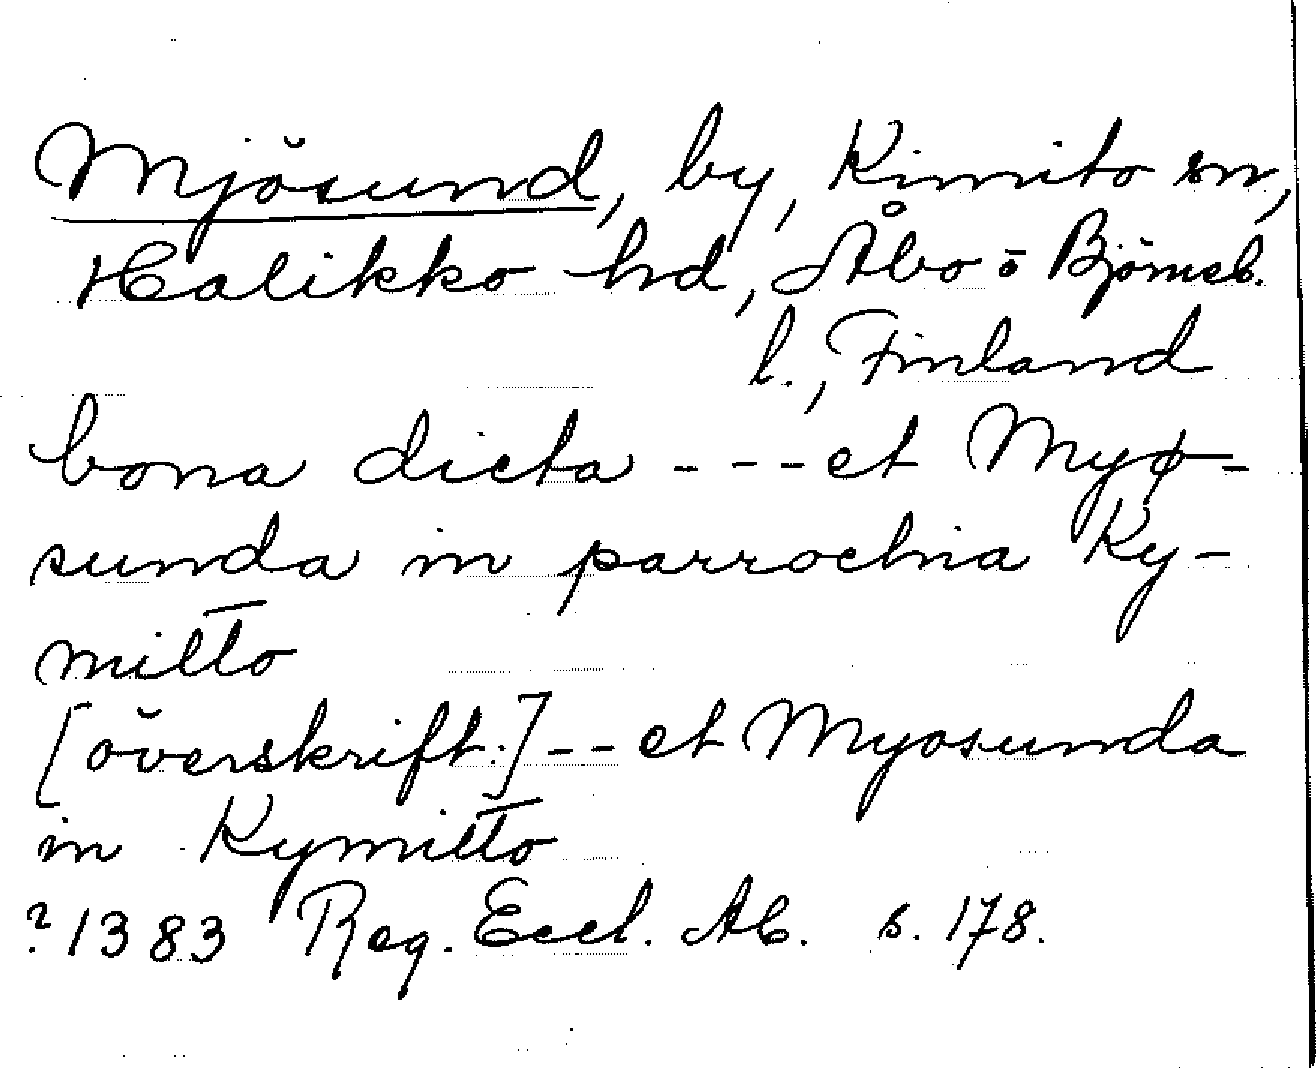 Mjösund, by, Kimito sn,
Halikko hd, Åbo o Björneb.
l., Finland
bona dicta - - - et Myø-
sunda in parrochia Ky-
mitto
[överskrift:] - - et Myosunda
in Kymitto
? 1383 Reg. Eccl. Ab. s. 178.